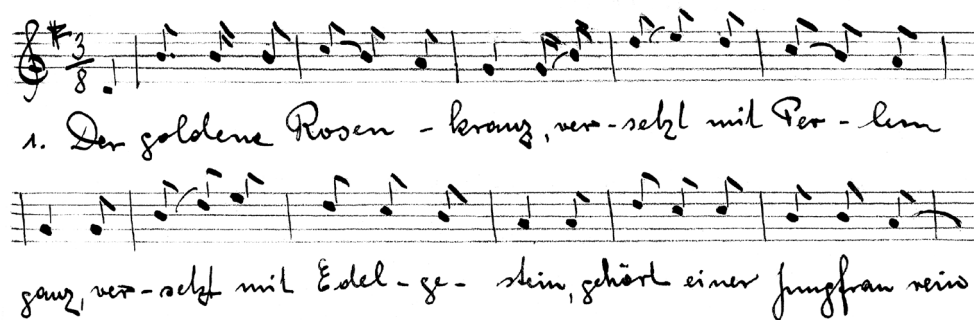 3
8
1. Der goldene Rosen - kranz, ver - setzt mit Per - lein
ganz, ver - setzt mit Edel - ge - stein, gehört einer Jungfrau rein